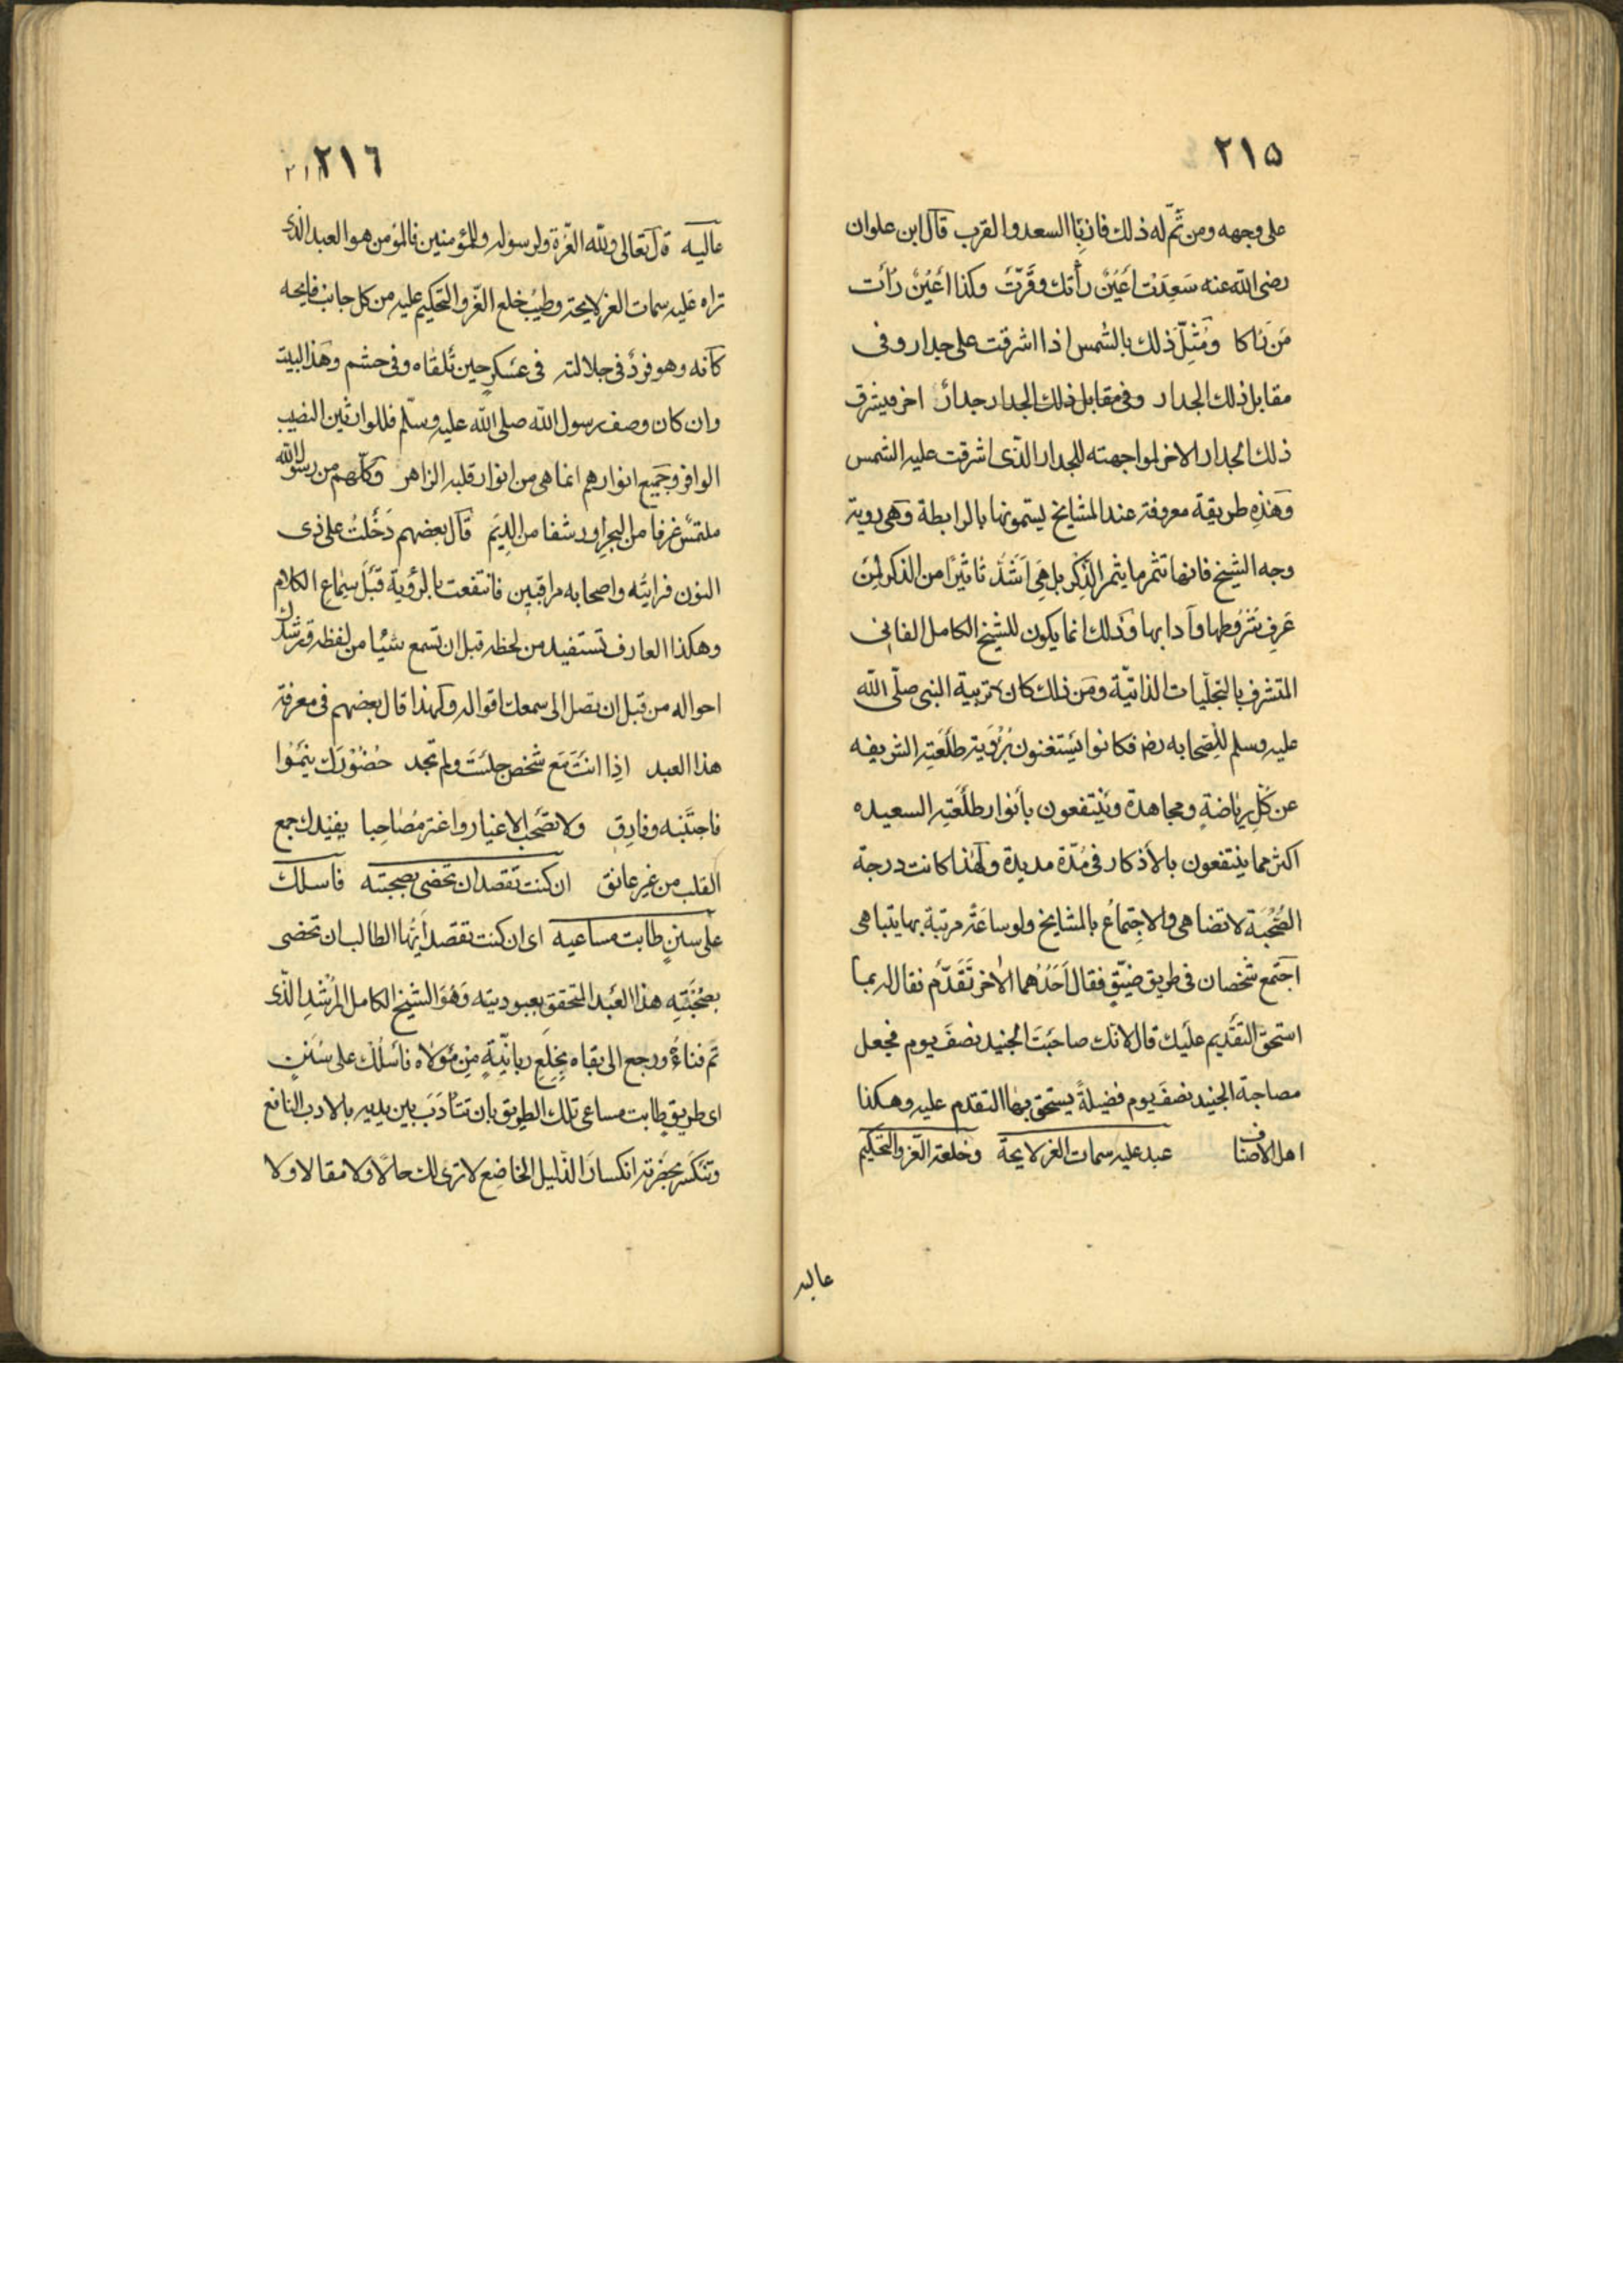 ٢١٥
على وجهه ومن ثم له ذلك فاز بالسعد والقرب قال ابن علوان
رضى الله عنه سَعِدَت اَعْيُنٌ رأتك وقَرّت وكذا اَعْيُنٌ رَأَت
مَن رَاكا ومُثِّلَ ذلك بالشمس اذا اشرقت على جدار وفى
مقابل ذلك الجدار وفى مقابل ذلك الجدار جدارٌ اخر فيشرق
ذلك الجدار الاخر لمواجهته للجدار الذى اشرقت عليه الشمس
وهذه طريقة معروفة عند المشايخ يسمونها بالرابطة وهى روية
وجه الشيخ فانها تثمر ما يثمر الذِّكر بل هِىَ اَشَدُّ تاثيرًا من الذكر لِمَن
عَرفِ شُرُوطها وآدابها وذلك انما يكون للشيخ الكامل الفانى
المتشرف بالتجلّيات الذاتيّة ومن ذلك كان تربية النبى صلّى الله
عليه وسلم للصِّحابه رض فكانوا يَسْتغنون بُرؤية طَلْعَتِه الشريفه
عن كُلِ رياضةٍ ومجاهدة ويَنْتفعون بأنوار طَلْعَتِه السعيده
اكثر مما ينتفعون بالأذكار فى مُدّة مديدة ولهذا كانت درجة
الصُّحْبَة لا تضاهى والاجتِماعُ بالمشايخ ولو ساعَةً مرتبة بها يتباهى
اجتمع شخصان فى طريق ضيّقٍ فقال اَحَدُهما الاخر تَقَدّم فقال له بما
استحقّ التقْديم علَيك قال لانّك صاحَبْتَ الجنيد نصفَ يوم فجعل
مصاحبة الجنيد نصفَ يوم فضيلةً يستحق بها التقدم عليه وهكذا
اهل الانصاف عبد عليه سمات العز لايحة وخلعة العزّ والتحكيم
عاليه
٢١٦
عاليه قال تعالى ولله العزّة ولرسوله وللمؤمنين فالمؤمن هو العبد الذى
تراه عَليه سمات العز لايحة وطيْب خلع العّز والتحكيم عليه من كل جانب فايحه
كأنه وهو فردٌ فى جلالته فى عَسكرٍ حين تَلقاه وفى حشم وهذا البيت
وان كان وصف رسول الله صلى الله عليه وسلّم فللوارثين النصيب
الوافر وجَميع انوارهم انما هى من انوار قلبه الزاهر وكلّهم من رسول الله
ملتمسٌ غرفا من البحرِ اورشفا من الدِيَم قال بعضهم دَخَلتُ على ذى
النون فرايتُه واصحابه مراقبين فانتفعت بالرؤية قَبْلَ سِماعِ الكلام
وهكذا العارف تستفيد من لحظه قبل ان تسمع شيًا من لفظه قد ترشدك
احواله من قبل ان تصل الى سمعك اقواله ولهذا قال بعضهم فى معرفة
هذا العبد اذِا انتَ مَع شخص جلسَتَ ولم تجد حُضُورَك ينمُوا
فاجتَنبه وفارِق ولا تصحَب الاغيار واغتر مُصاحِبا يفيْدك جمع
القلب من غير عائق ان كنت تقصد ان تحضى بصحبته فاسلك
على سننٍ طابت مساعيه اى ان كنت تقصد اَيّها الطالب ان تحضى
بصُحْبَتِه هذا العَبْد المتحقق بعبوديته وَهُوَ الشيخ الكامل المُرْشِد الّذى
تم فناءُه ورجع الى بقاه بِخِلَعٍ ربانيّةٍ مِن مَولاه فاسْلُك على سُنَنٍ
اى طريقٍ طابت مساعى تلك الطريق بان تَتَأدَبَ بين يديه بالادب النافع
وتنكسَر بحَضرته انكسارَ الذّليل الخاضِع لا ترى لك حالًا ولا مقالا ولا